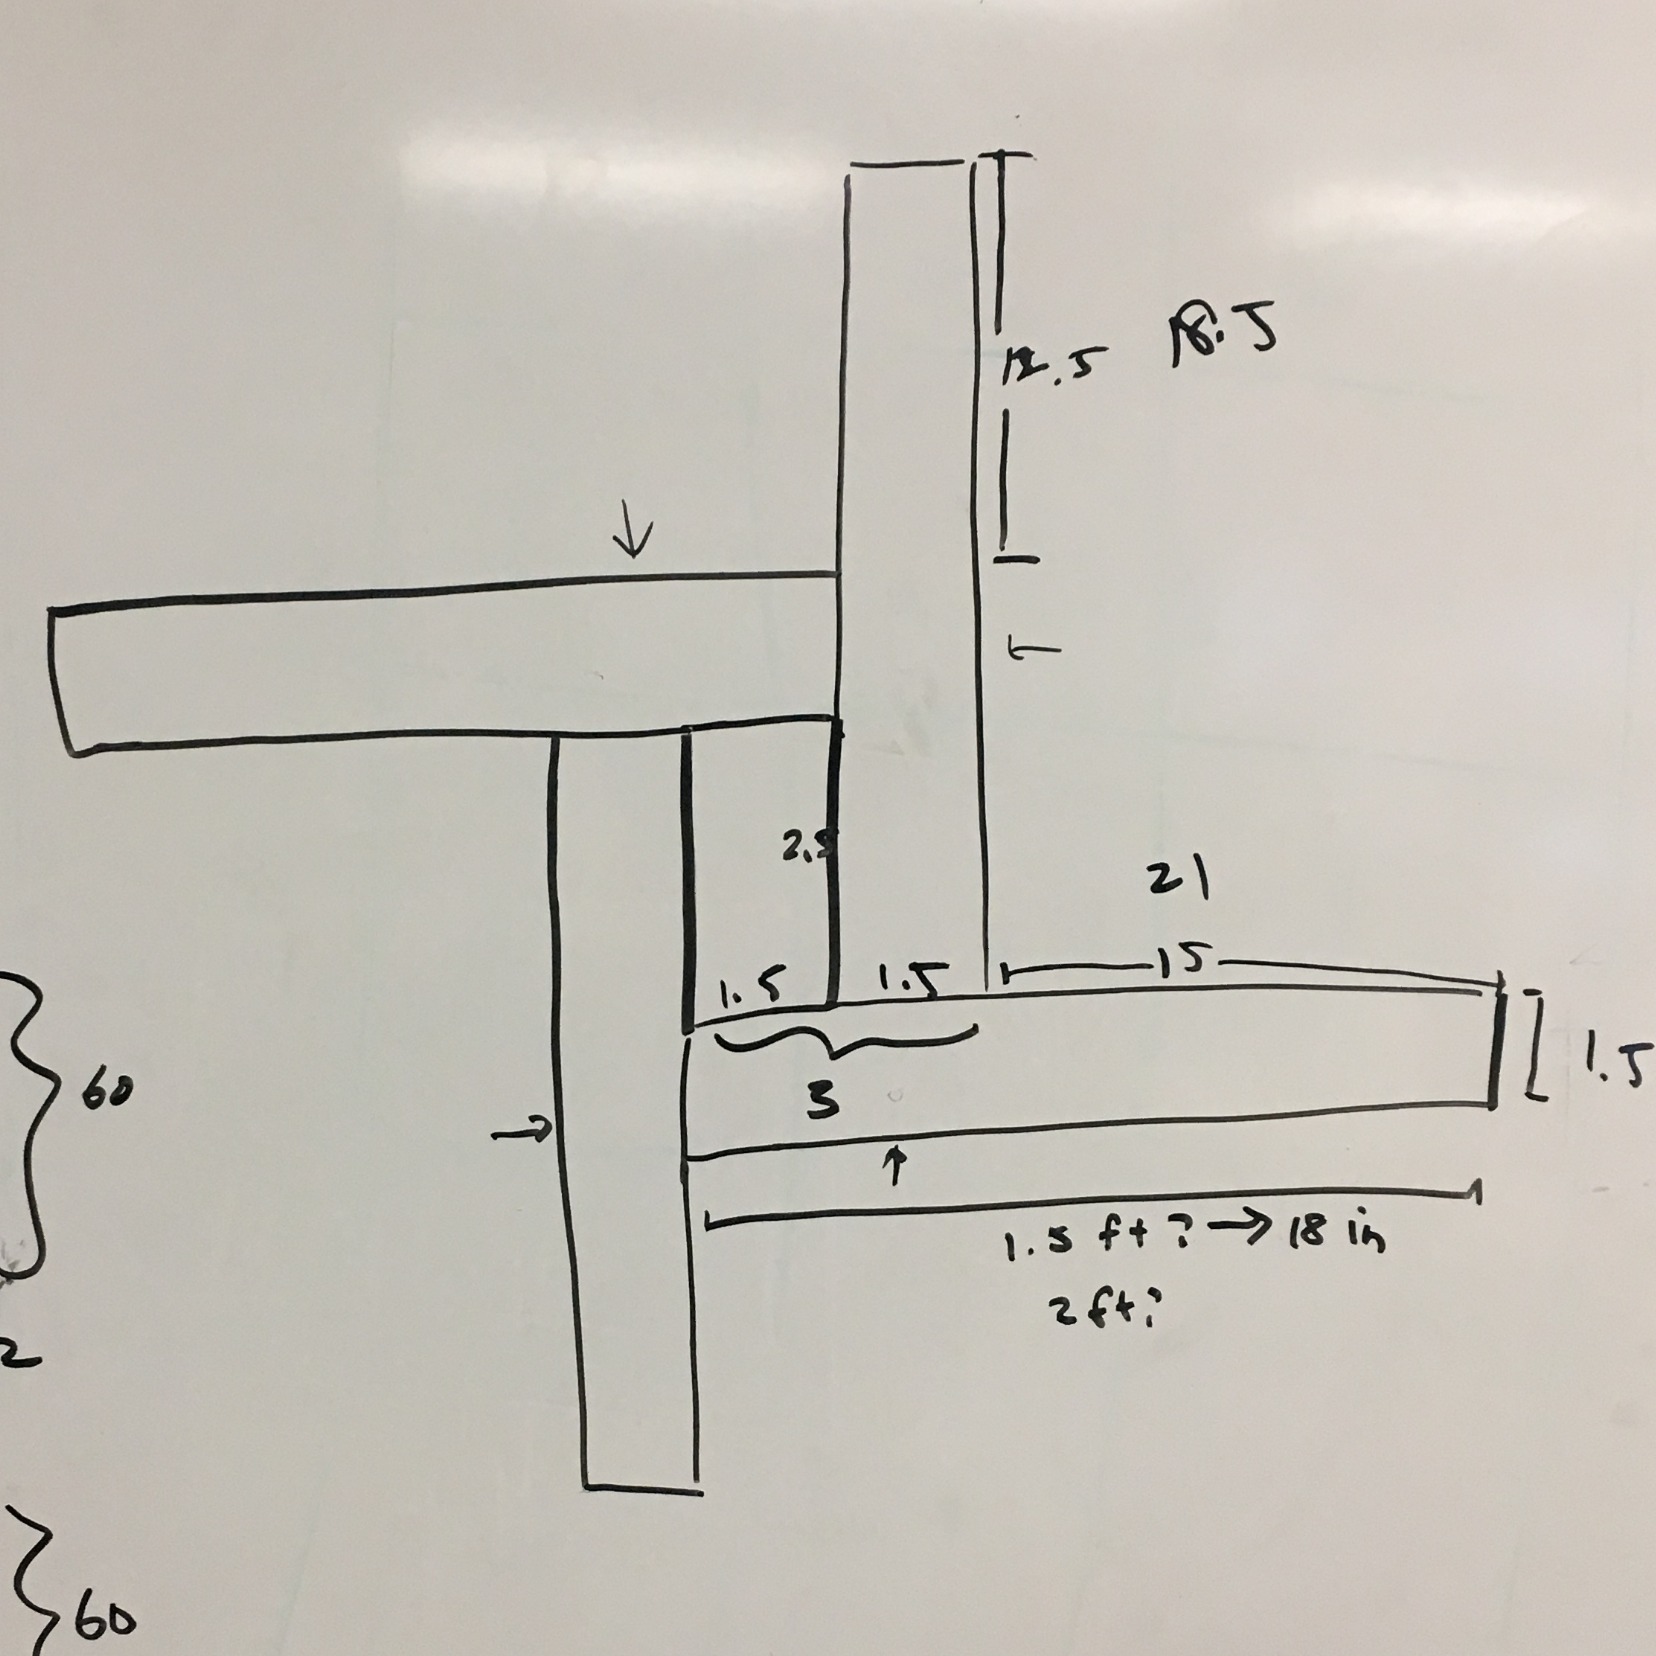 12.5 18.5
2.5
21
1.5 1.5 15
60 3 1.5
1.5 ft? → 18 in
2 ft?
2
60